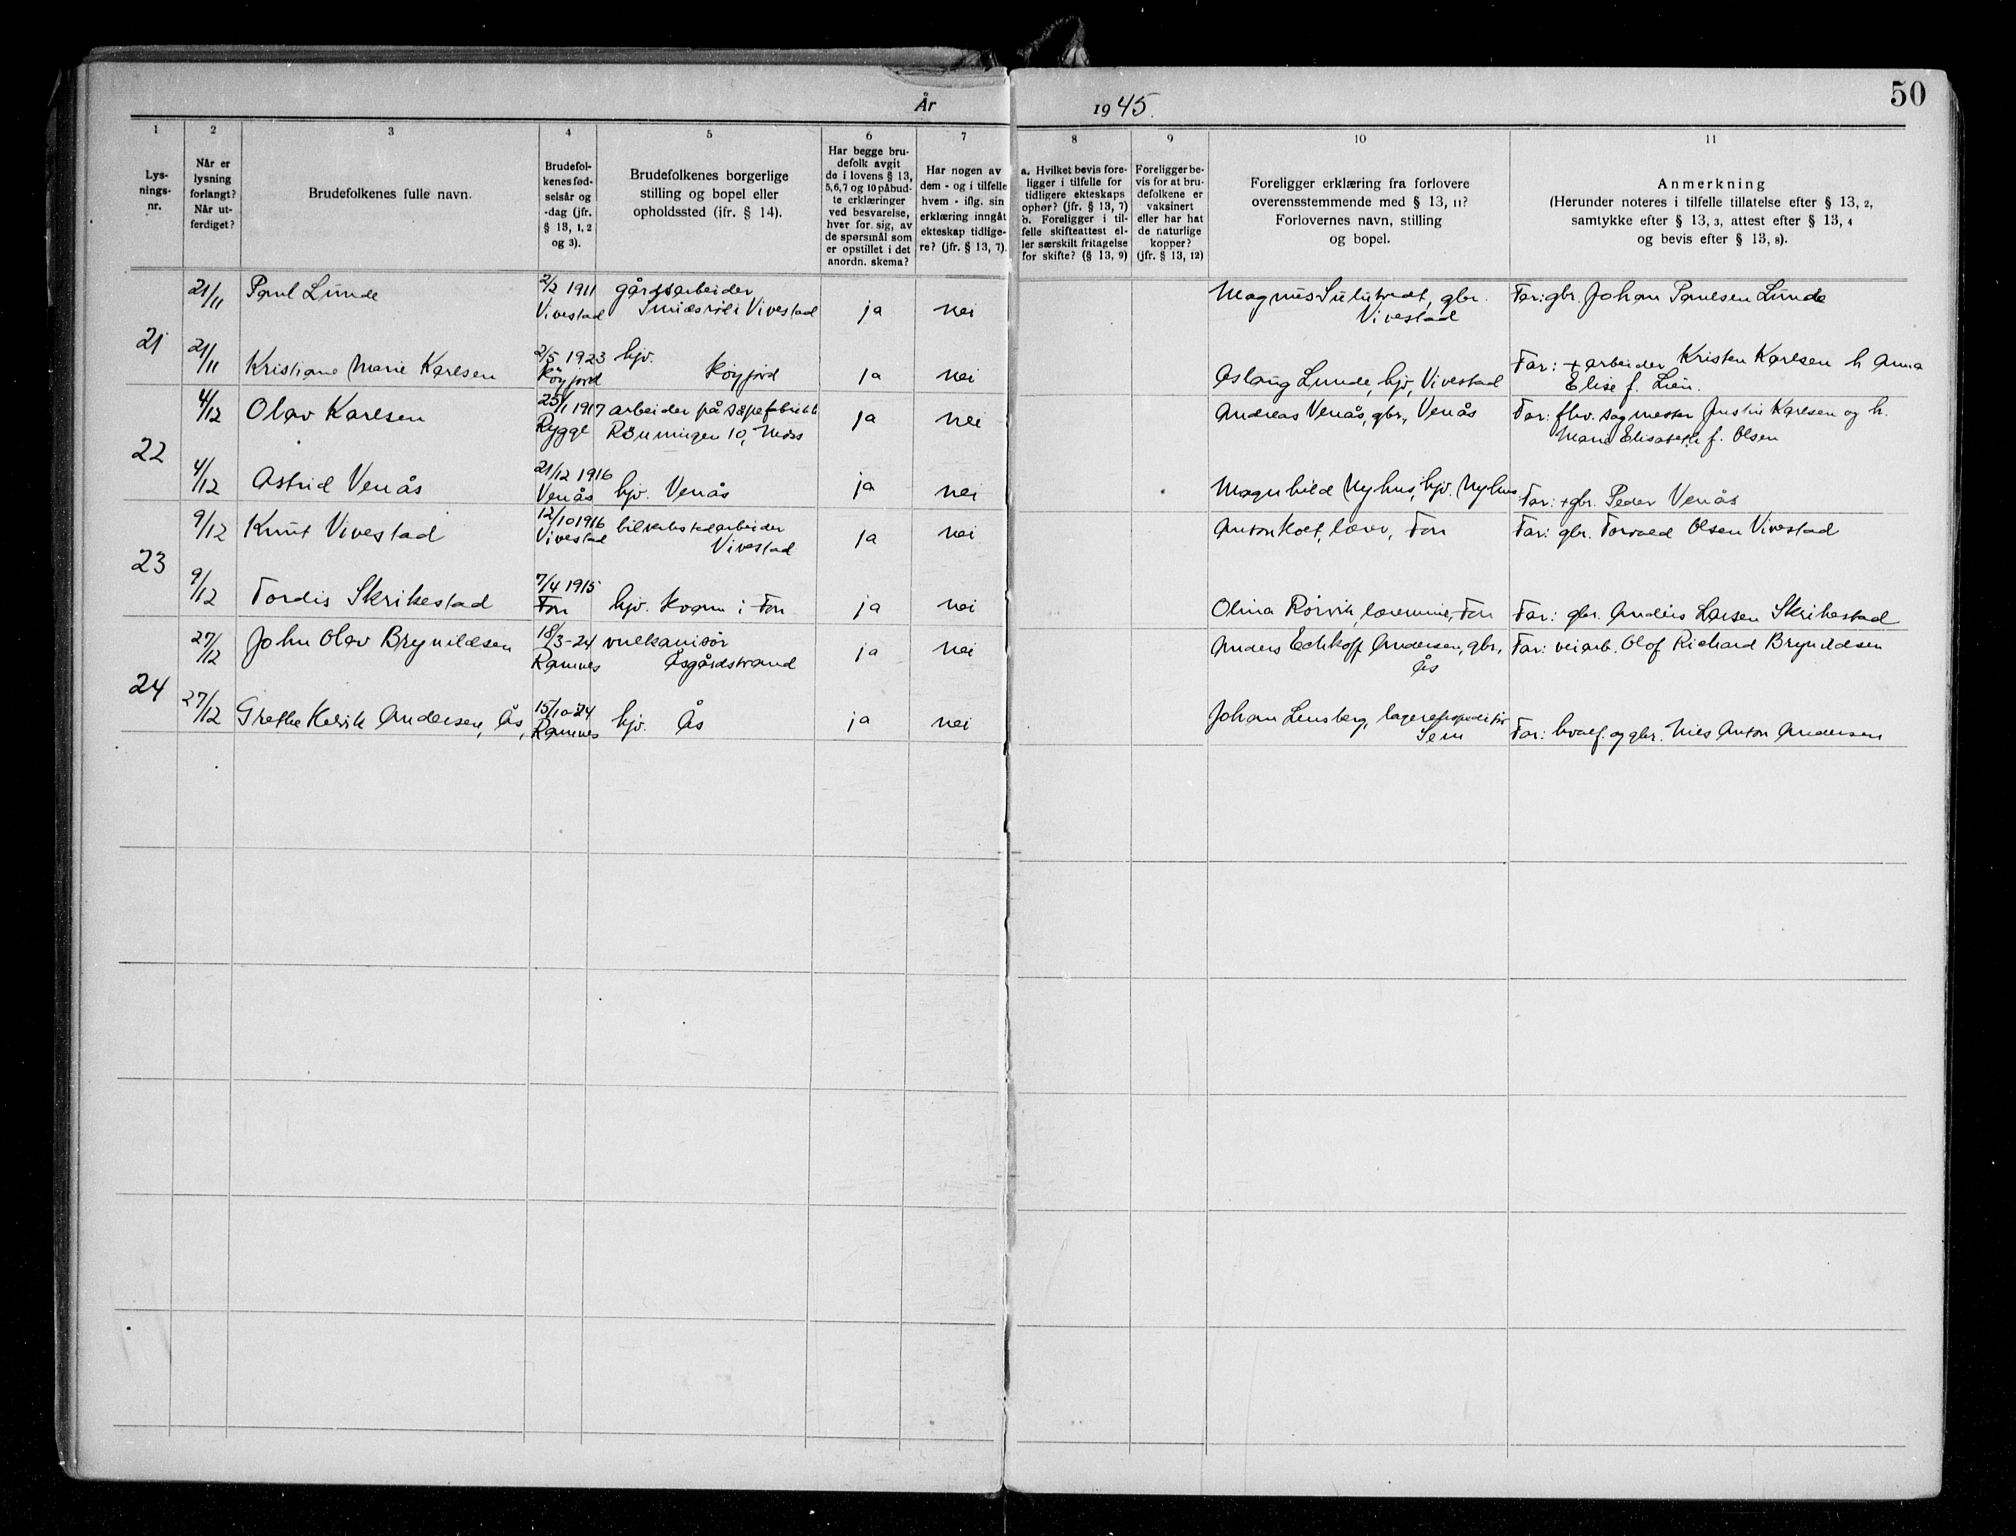 50
År 1945.
1 2 3 4 5 6 7 8 9 10 11
Lys-
nings-
nr.
Når er
lysning
forlangt?
Når ut-
ferdiget?
Brudefolkenes fulle navn.
Brudefol-
kenes fød-
selsår og
-dag (jfr.
§ 13, 1, 2
og 3).
Brudefolkenes borgerlige
stilling og bopel eller
opholdssted (jfr. § 14).
Har begge bru-
defolk avgit
de i lovens § 13,
5, 6, 7 og 10 påbud-
te erklæringer
ved besvarelse,
hver for sig, av
de spørsmål som
er opstillet i det
anordn. skema?
Har nogen av
dem - og i tilfelle
hvem - iflg. sin
erklæring inngåt
ekteskap tidlige-
re? (jfr. § 13, 7).
a. Hvilket bevis fore-
ligger i tilfelle for
tidligere ekteskaps
ophør? (jfr. § 13, 7)
b. Foreligger i til-
felle skifteattest el-
ler særskilt fritagelse
for skifte? (§ 13, 9)
Foreligger be-
vis for at bru-
defolkene er
vaksinert
eller har hat
de naturlige
kopper?
(jfr. § 13, 12)
Foreligger erklæring fra forlovere
overensstemmende med § 13, 11?
Forlovernes navn, stilling
og bopel.
Anmerkning
(Herunder noteres i tilfelle tillatelse efter § 13, 2,
samtykke efter § 13, 3, attest efter § 13, 4
og bevis efter § 13, 8).
21
21/11 Paul Lunde 2/2 1911 gårdsarbeider ja nei Magnus gbr. Far: gbr. Johan Paulsen Lunde
Vivestad i Vivestad Vivestad
21/11 Kristiane Marie Karlsen 2/5 1923 hjv. ja nei Aslaug Lunde, hjv, Vivestad Far: + arbeider Kristen Karlsen h Anna
Køyjord Køyjord Elise f. Lien.
22
4/12 Olav Karlsen 25/1 1917 arbeider på såpefabrikk ja nei Andreas Venås, gbr., Venås Far: fhv. sagmester Karlsen og h.
Rygge Rönningen 10, Moss Marie Elisabeth f. Olsen
4/12 Astrid Venås 21/12 1916 ja nei Magnhild Nyhus, hjv. Nyhus Far: + gbr. Peder Venås
Venås hjv. Venås
23
9/12 Knut Vivestad 12/10 1916 bilverkstedarbeider ja nei Anton lærer, Fon Far: gbr. Torvald Olsen Vivestad
Vivestad Vivestad
9/12 Tordis Skrikestad 7/4 1915 ja nei Olina Rørvik, lærerinne, Fon Far: gbr. Anders Larsen Skrikestad
Fon hjv. Kvann i Fon
24
27/12 John Olav Brynildsen 18/3-24 vulkanisør ja nei Anders Andersen, gbr, Far: veiarb. Olof Richard Brynildsen
Ramnes Åsgårdstrand Ås
27/12 Grethe Andersen, Ås, 15/10-24 hjv. Ås ja nei Johan Lensberg, lagerekspeditør Far: hvalf. og gbr. Nils Anton Andersen
Ramnes Sem